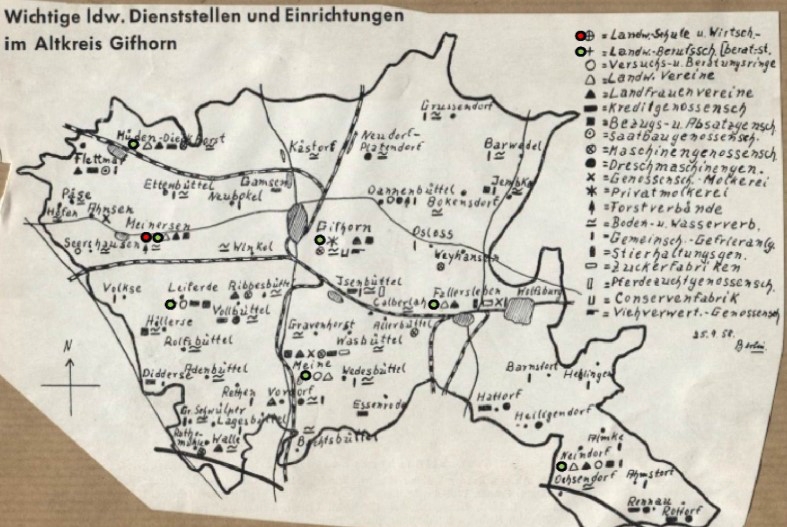 Wichtige ldw. Dienststellen und Einrichtungen
im Altkreis Gifhorn
= Landw.-Schule u. Wirtsch.-
= Landw.-Berufssch. [berat-st.
= Versuchs-u. Beratungsringe
= Landw. Vereine
= Landfrauenvereine
= Kreditgenossensch
= Bezugs- u. Absatzgensch.
= Saatbaugenossensch.
= Maschinengenossensch.
= Dreschmaschinengen.
= Genossensch.-Molkerei
= Privatmolkerei
= Forstverbände
= Boden- u. Wasserverb.
= Gemeinsch.-Gefrieranlg.
= Stierhaltungsgen.
= Zuckerfabriken
= Pferdezuchtgenossensch.
= Conservenfabrik
= Viehverwert.-Genossensch
25.9.58.
Grussendorf
Müden-Dieckhorst
Kästorf
Neudorf-
Platendorf
Barwedel
Flettmar
Ettenbüttel
Gamsen
Dannenbüttel
Jembke
Päse
Neubokel
Bokensdorf
Höfen
Ahnsen
Meinersen
Gifhorn
Osloss
Seershausen
Winkel
Weyhausen
Volkse
Leiferde
Ribbesbüttel
Isenbüttel
Fallersleben
Wolfsburg
Vollbüttel
Calberlah
Hillerse
Gravenhorst
Allerbüttel
Rolfsbüttel
Wasbüttel
Didderse
Adenbüttel
Meine
Wedesbüttel
Barnstorf
Hehlingen
Rethen
Vordorf
Essenrode
Hattorf
Gr. Schwülper
Lagesbüttel
Heiligendorf
Rothe-
mühle
Walle
Bechtsbüttel
Almke
Neindorf
Ochsendorf
Ahmstorf
Rennau
Rottorf
N